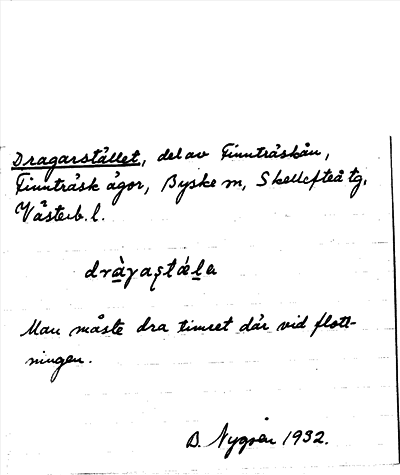 Dragarstället, del av Finnträskån,
Finnträsk ägor, Byske sn, Skellefteå tg,
Västerb. l.
Man måste dra timret där vid flott-
ningen.
B. Nygren 1932.